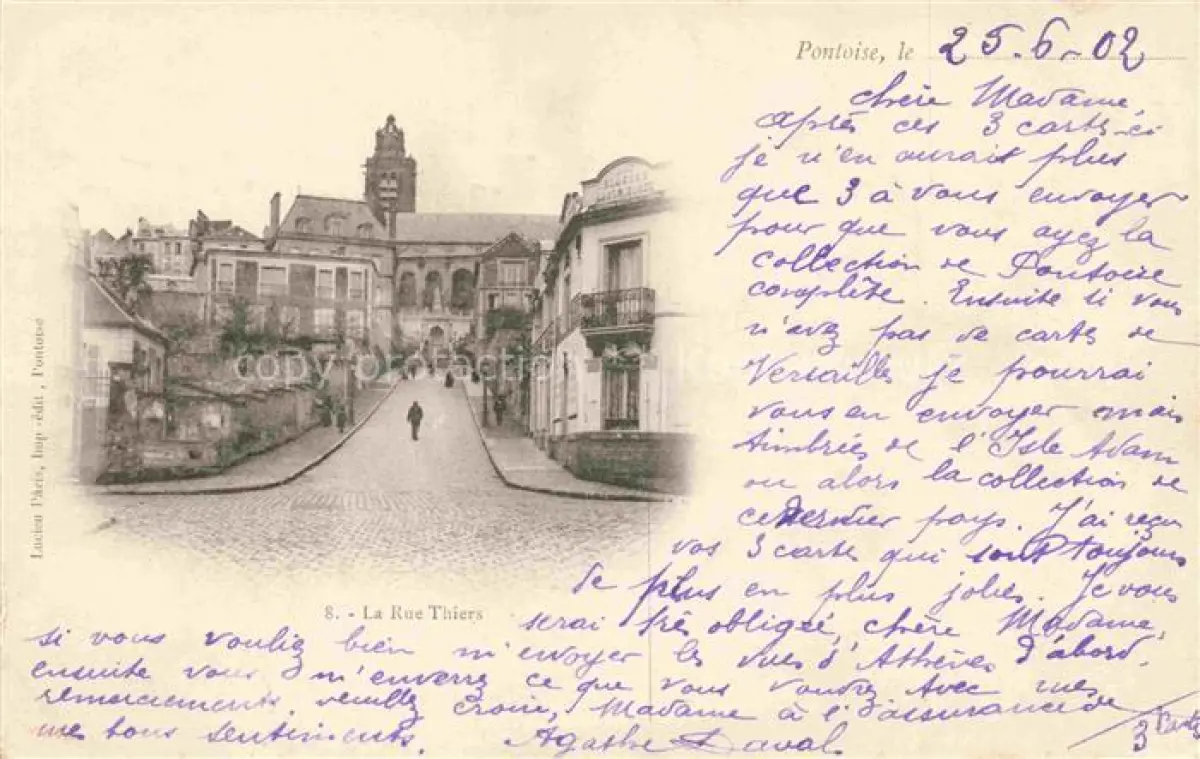 Pontoise, le 25.6-02
chère Madame,
après ces 3 cartes-ci
je n'en aurait plus
que 3 à vous envoyer
pour que vous ayez la
collection de Pontoise
complète. Ensuite si vous
n'avez pas de cartes de
Versailles je pourrai
vous en envoyer mais
timbrées de l'Isle Adam
ou alors la collection de
ce dernier pays. J'ai reçu
vos 3 cartes qui sont toujours
de plus en plus jolies. Je vous
serai très obligée, chère Madame,
si vous vouliez bien m'envoyer les vues d'Athènes d'abord.
ensuite vous m'enverrez ce que vous voudrez. Avec mes
remerciements, veuillez croire, Madame à l'assurance de
mes bons sentiments. Agathe Daval
3 cartes
8. - La Rue Thiers
Lucien Pâris, Imp.-édit., Pontoise
copy protection